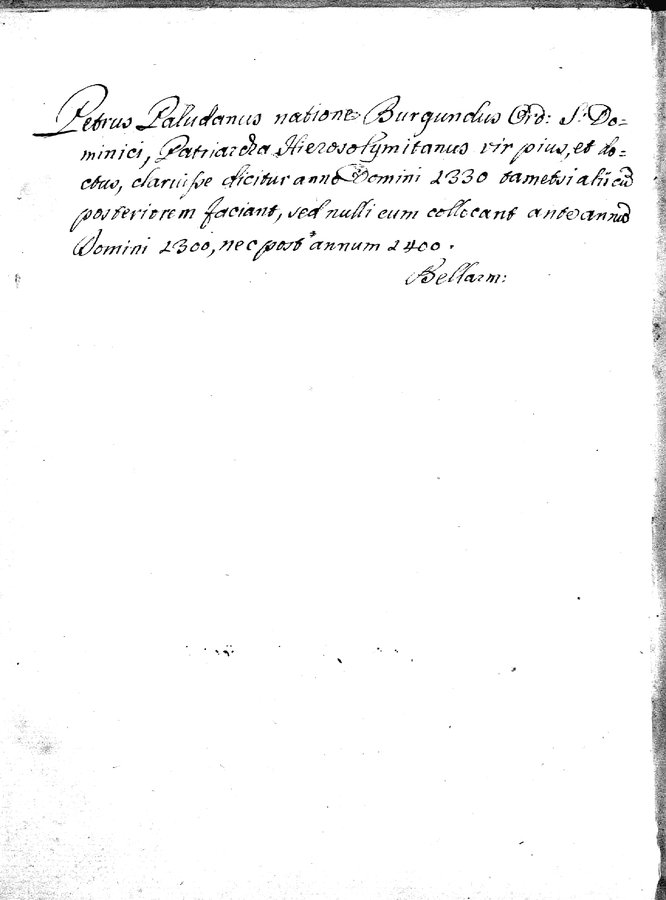 Petrus Paludanus natione Burgundus Ord: S. Do=
minici, Patriarcha Hierosolymitanus vir pius, et do=
ctus, claruisse dicitur anno Domini 1330 tametsi alii eū
posteriorem faciant, sed nulli eum collocant ante annū
Domini 1300, nec post annum 1400.
Bellarm: